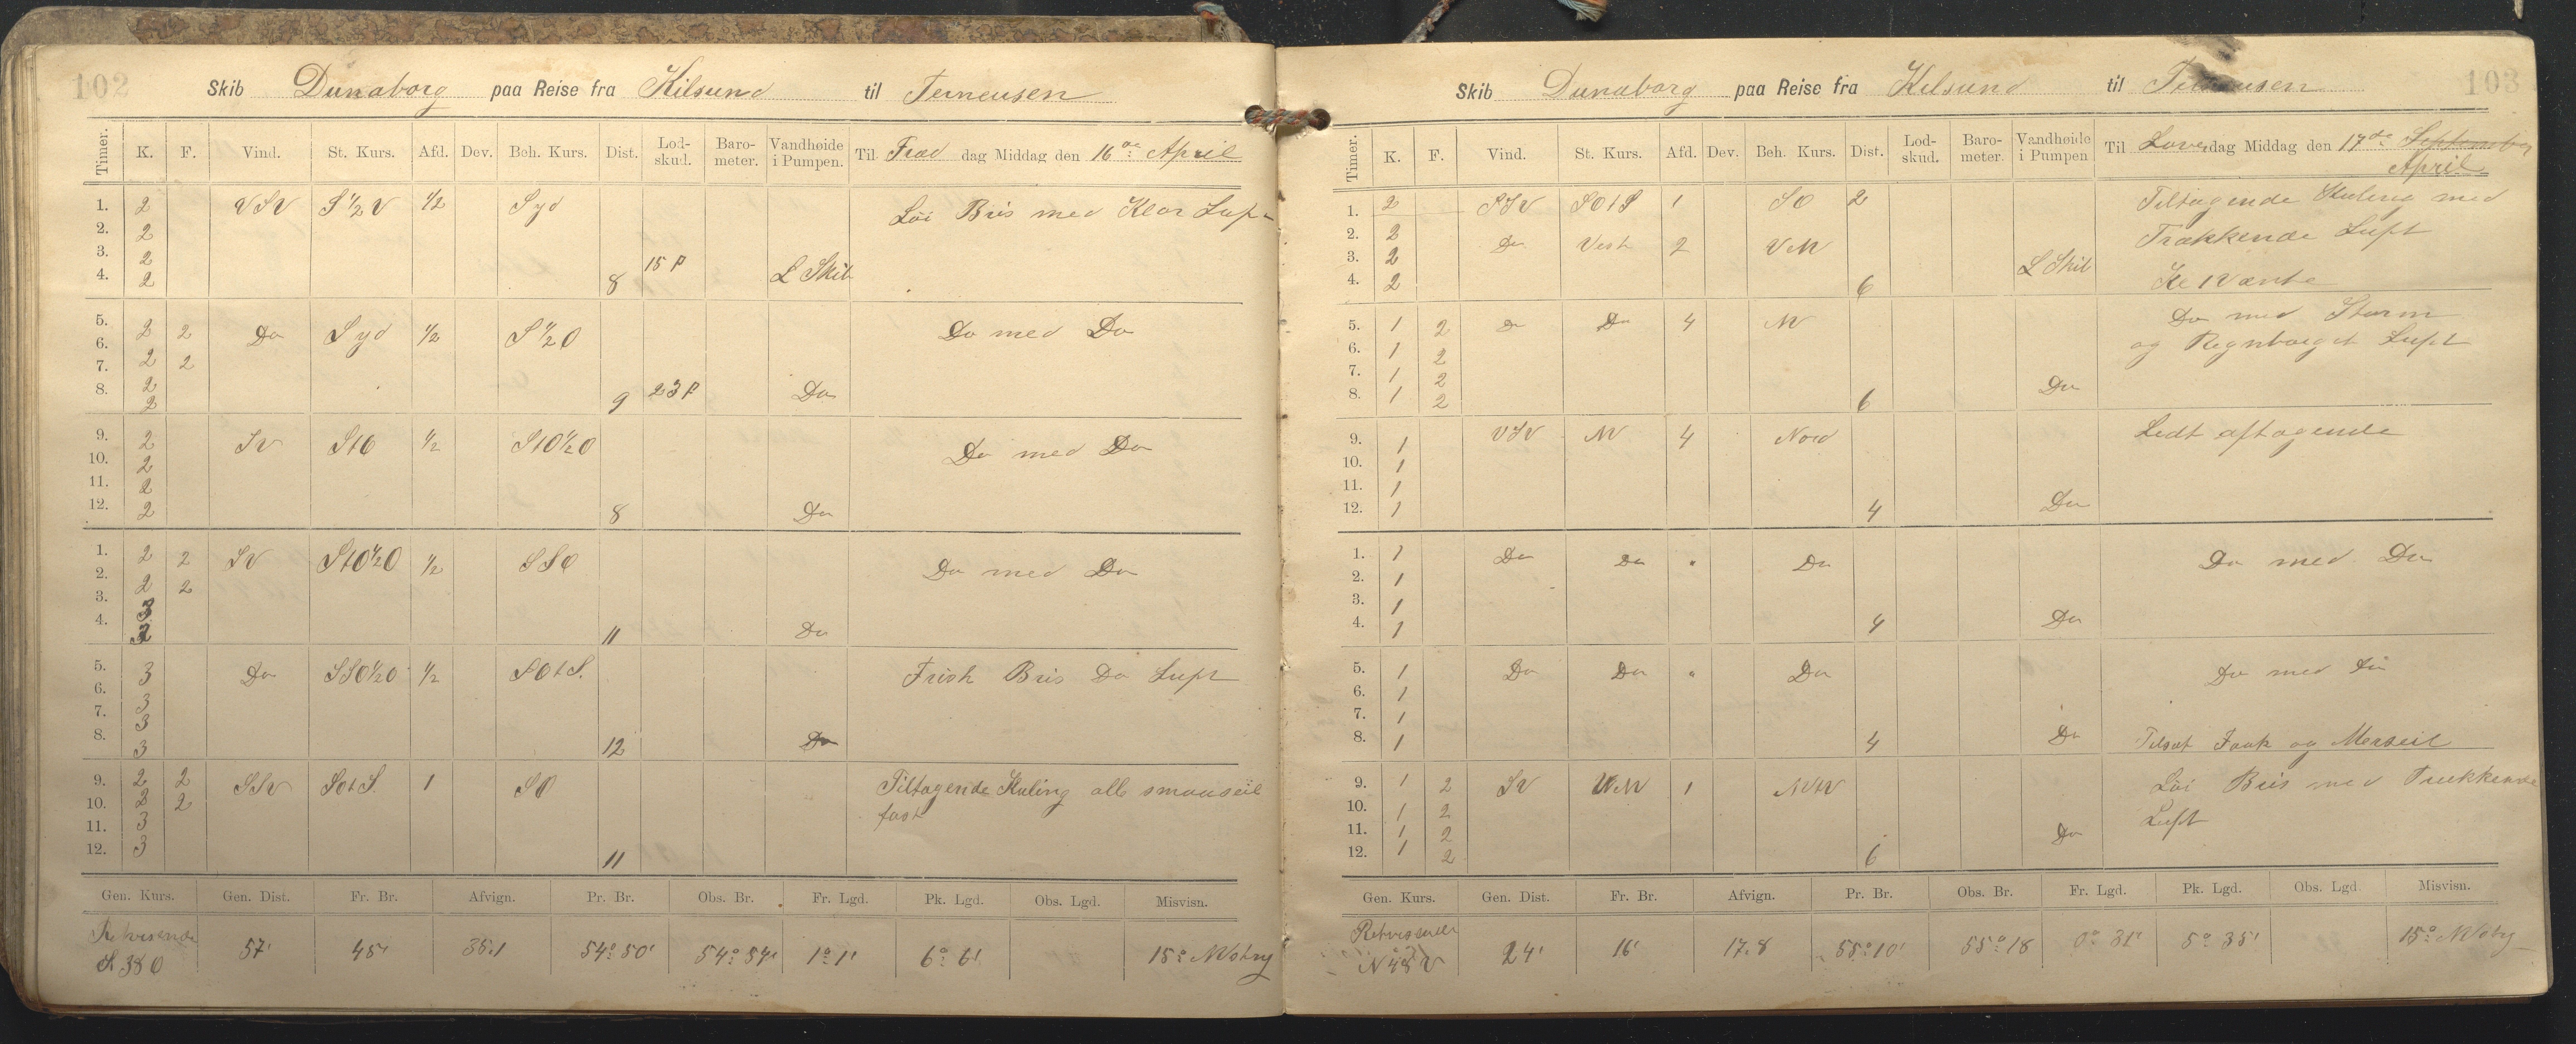 102
Skib Dunaborg paa Reise fra Kilsund til Terneusen
Timer. K. F. Vind. St. Kurs. Afd. Dev. Beh. Kurs. Dist. Lod-skud. Baro-meter. Vandhøide i Pumpen. Til Fredag Middag den 16de April
1. 2 VSV S 1/2 V 1/2 Syd Löi Bris med Klar Luft
2. 2
3. 2 15 f L Skib
4. 2 8
5. 2 2 Do Syd 1/2 S 1/2 O Do med Do
6. 2 2
7. 2
8. 2 9 23 f Do
9. 2 SV StO 1/2 StO 1/2 O Do med Do
10. 2
11. 2
12. 2 8 Do
1. 2 2 SV StO 1/2 O 1/2 SSO Do med Do
2. 2 2
3. 3
4. 11 Do
5. 3 Do SSO 1/2 O 1/2 SOtS. Frisk Bris Do Luft
6. 3
7. 3
8. 3 12 Do
9. 2 2 SSV SOtS. 1 SO Tiltagende Kuling alle smaaseil
10. 2 2 fast
11. 3
12. 3 11
Gen. Kurs. Gen. Dist. Fr. Br. Afvign. Pr. Br. Obs. Br. Fr. Lgd. Pk. Lgd. Obs. Lgd. Misvisn.
Retvisende
S 38 O 57' 45' 35,1 54° 50' 54° 54' 1° 1' 6° 6' 15° NVstrg
103
Skib Dunaborg paa Reise fra Kilsund til Terneusen
Timer. K. F. Vind. St. Kurs. Afd. Dev. Beh. Kurs. Dist. Lod-skud. Baro-meter. Vandhøide i Pumpen Til Löverdag Middag den 17de September
April
1. 2 SSV SOtS 1 SO 2 Tiltagende Kuling med
2. 2 Do Vest 2 VNV Trækkende Luft
3. 2 L Skib
4. 2 6
5. 1 2 Do Do 4 NV Do med Storm
6. 1 2 og Regnbyget Luft
7. 1 2
8. 1 2 6 Do
9. 1 VSV NV 4 Nord Lidt aftagende
10. 1
11. 1
12. 1 4 Do
1. 1 Do Do " Do Do med Do
2. 1
3. 1
4. 1 4 Do
5. 1 Do Do " Do Do med Do
6. 1
7. 1
8. 1 4 Do Tilsat Fok og Merseil
9. 1 2 SV VNV 1 NVtV Löi Bris med Trækkende
10. 1 2 Luft
11. 1 2 Do
12. 1 2 6
Gen. Kurs. Gen. Dist. Fr. Br. Afvign. Pr. Br. Obs. Br. Fr. Lgd. Pk. Lgd. Obs. Lgd Misvisn.
Retvisende
N 48 V 24' 16' 17,8 55° 10' 55° 18 0° 31' 5° 35' 15° NVstrg